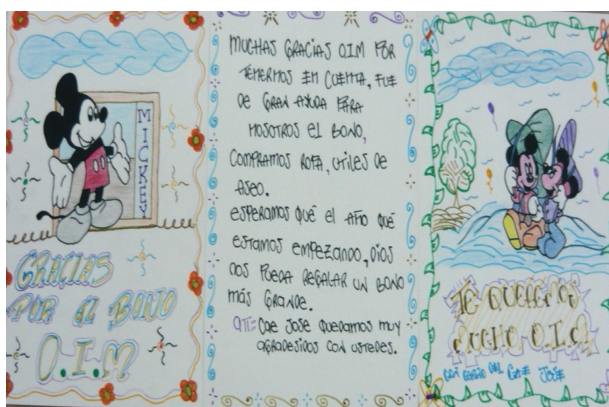 MICKEY
GRACIAS
POR El BONO
O.I.M
MUCHAS GRACIAS OIM POR
TENERNOS EN CUENTA, FUE
DE GRAN AYUDA PARA
NOSOTROS El BONO,
COMPRAMOS ROPA, UTILES DE
ASEO.
ESPERAMOS QUÉ El AÑO QUÉ
ESTAMOS EMPEZANDO, DIOS
NOS PUEDA REGALAR UN BONO
MÁS GRANDE.
ATT: CAE JOSE QUEDAMOS MUY
AGRADESIDOS CON USTEDES.
TE QUEREMOS
MUCHO O.I.M
CAE JOSE